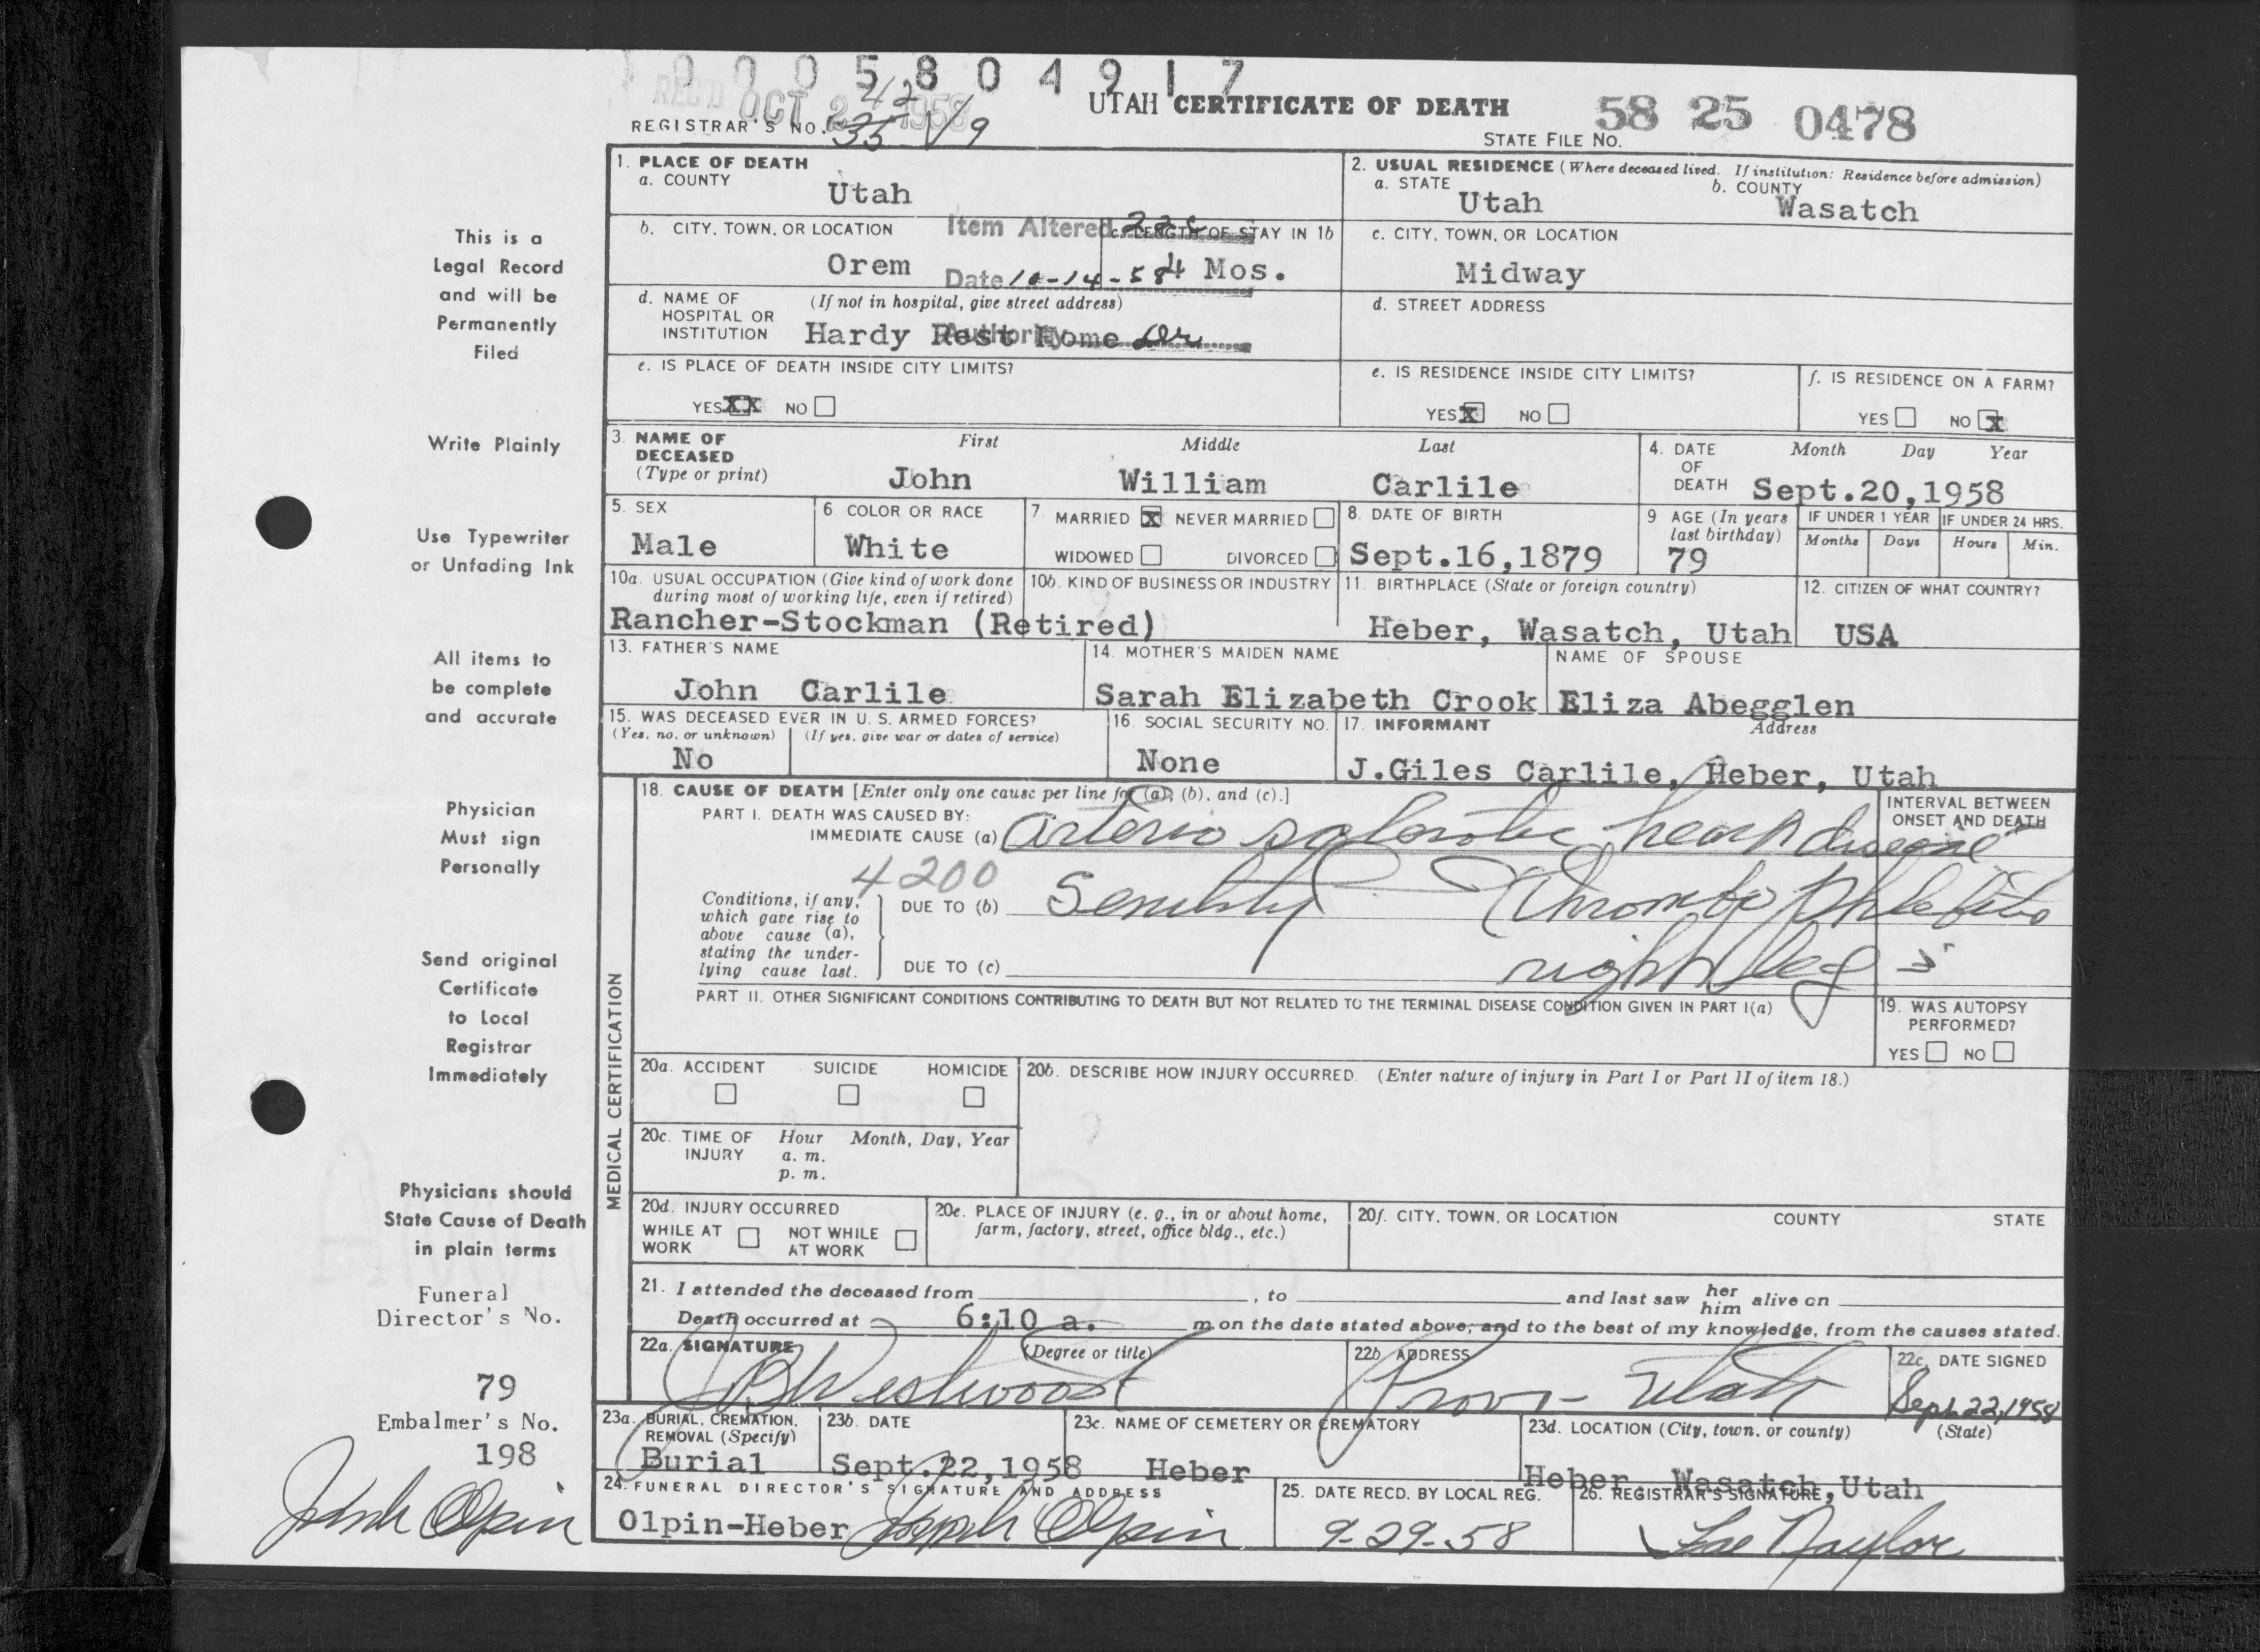 0 0 0 5 8 0 4 9 1 7
REC'D OCT 2 1958
42
REGISTRAR'S NO. 35 V9
UTAH CERTIFICATE OF DEATH
58 25 0478
STATE FILE NO.
1. PLACE OF DEATH
a. COUNTY
Utah
2. USUAL RESIDENCE (Where deceased lived. If institution: Residence before admission)
a. STATE
Utah
b. COUNTY
Wasatch
b. CITY, TOWN, OR LOCATION
Orem
Item Altered 22c
c. LENGTH OF STAY IN 1b
Date 10-14-58
4 Mos.
c. CITY, TOWN, OR LOCATION
Midway
d. NAME OF HOSPITAL OR INSTITUTION
(If not in hospital, give street address)
Hardy Rest Home
Authority
d. STREET ADDRESS
e. IS PLACE OF DEATH INSIDE CITY LIMITS?
YES XX NO
e. IS RESIDENCE INSIDE CITY LIMITS?
YES X NO
f. IS RESIDENCE ON A FARM?
YES NO X
3. NAME OF DECEASED
(Type or print)
First Middle Last
John William Carlile
4. DATE OF DEATH
Month Day Year
Sept.20,1958
5. SEX
Male
6. COLOR OR RACE
White
7. MARRIED X NEVER MARRIED
WIDOWED DIVORCED
8. DATE OF BIRTH
Sept.16,1879
9 AGE (In years last birthday)
79
IF UNDER 1 YEAR IF UNDER 24 HRS.
Months Days Hours Min.
10a. USUAL OCCUPATION (Give kind of work done
during most of working life, even if retired)
Rancher-Stockman (Retired)
10b. KIND OF BUSINESS OR INDUSTRY
11. BIRTHPLACE (State or foreign country)
Heber, Wasatch, Utah
12. CITIZEN OF WHAT COUNTRY?
USA
13. FATHER'S NAME
John Carlile
14. MOTHER'S MAIDEN NAME
Sarah Elizabeth Crook
NAME OF SPOUSE
Eliza Abegglen
15. WAS DECEASED EVER IN U. S. ARMED FORCES?
(Yes, no, or unknown) (If yes, give war or dates of service)
No
16. SOCIAL SECURITY NO.
None
17. INFORMANT Address
J.Giles Carlile, Heber, Utah
MEDICAL CERTIFICATION
18. CAUSE OF DEATH [Enter only one cause per line for (a), (b), and (c).]
PART I. DEATH WAS CAUSED BY:
IMMEDIATE CAUSE (a) Arterio sclerotic heart disease
INTERVAL BETWEEN ONSET AND DEATH
4200
Conditions, if any,
which gave rise to
above cause (a),
stating the under-
lying cause last.
DUE TO (b) Senility Thrombo phlebitis
DUE TO (c) right leg
PART II. OTHER SIGNIFICANT CONDITIONS CONTRIBUTING TO DEATH BUT NOT RELATED TO THE TERMINAL DISEASE CONDITION GIVEN IN PART I(a)
19. WAS AUTOPSY PERFORMED?
YES NO
20a. ACCIDENT SUICIDE HOMICIDE
20b. DESCRIBE HOW INJURY OCCURRED. (Enter nature of injury in Part I or Part II of item 18.)
20c. TIME OF INJURY
Hour Month, Day, Year
a. m.
p. m.
20d. INJURY OCCURRED
WHILE AT WORK NOT WHILE AT WORK
20e. PLACE OF INJURY (e. g., in or about home,
farm, factory, street, office bldg., etc.)
20f. CITY, TOWN, OR LOCATION COUNTY STATE
21. I attended the deceased from , to and last saw her him alive on
Death occurred at 6:10 a. m on the date stated above; and to the best of my knowledge, from the causes stated.
22a. SIGNATURE (Degree or title)
Westwood
22b ADDRESS
Provo Utah
22c. DATE SIGNED
Sept 22, 1958
23a. BURIAL, CREMATION,
REMOVAL (Specify)
Burial
23b. DATE
Sept.22,1958
23c. NAME OF CEMETERY OR CREMATORY
Heber
23d. LOCATION (City, town, or county) (State)
Heber, Wasatch,Utah
24. FUNERAL DIRECTOR'S SIGNATURE AND ADDRESS
Olpin-Heber Joseph Olpin
25. DATE RECD. BY LOCAL REG.
9-29-58
26. REGISTRAR'S SIGNATURE
Naylor
This is a
Legal Record
and will be
Permanently
Filed
Write Plainly
Use Typewriter
or Unfading Ink
All items to
be complete
and accurate
Physician
Must sign
Personally
Send original
Certificate
to Local
Registrar
Immediately
Physicians should
State Cause of Death
in plain terms
Funeral
Director's No.
79
Embalmer's No.
198
Joseph Olpin